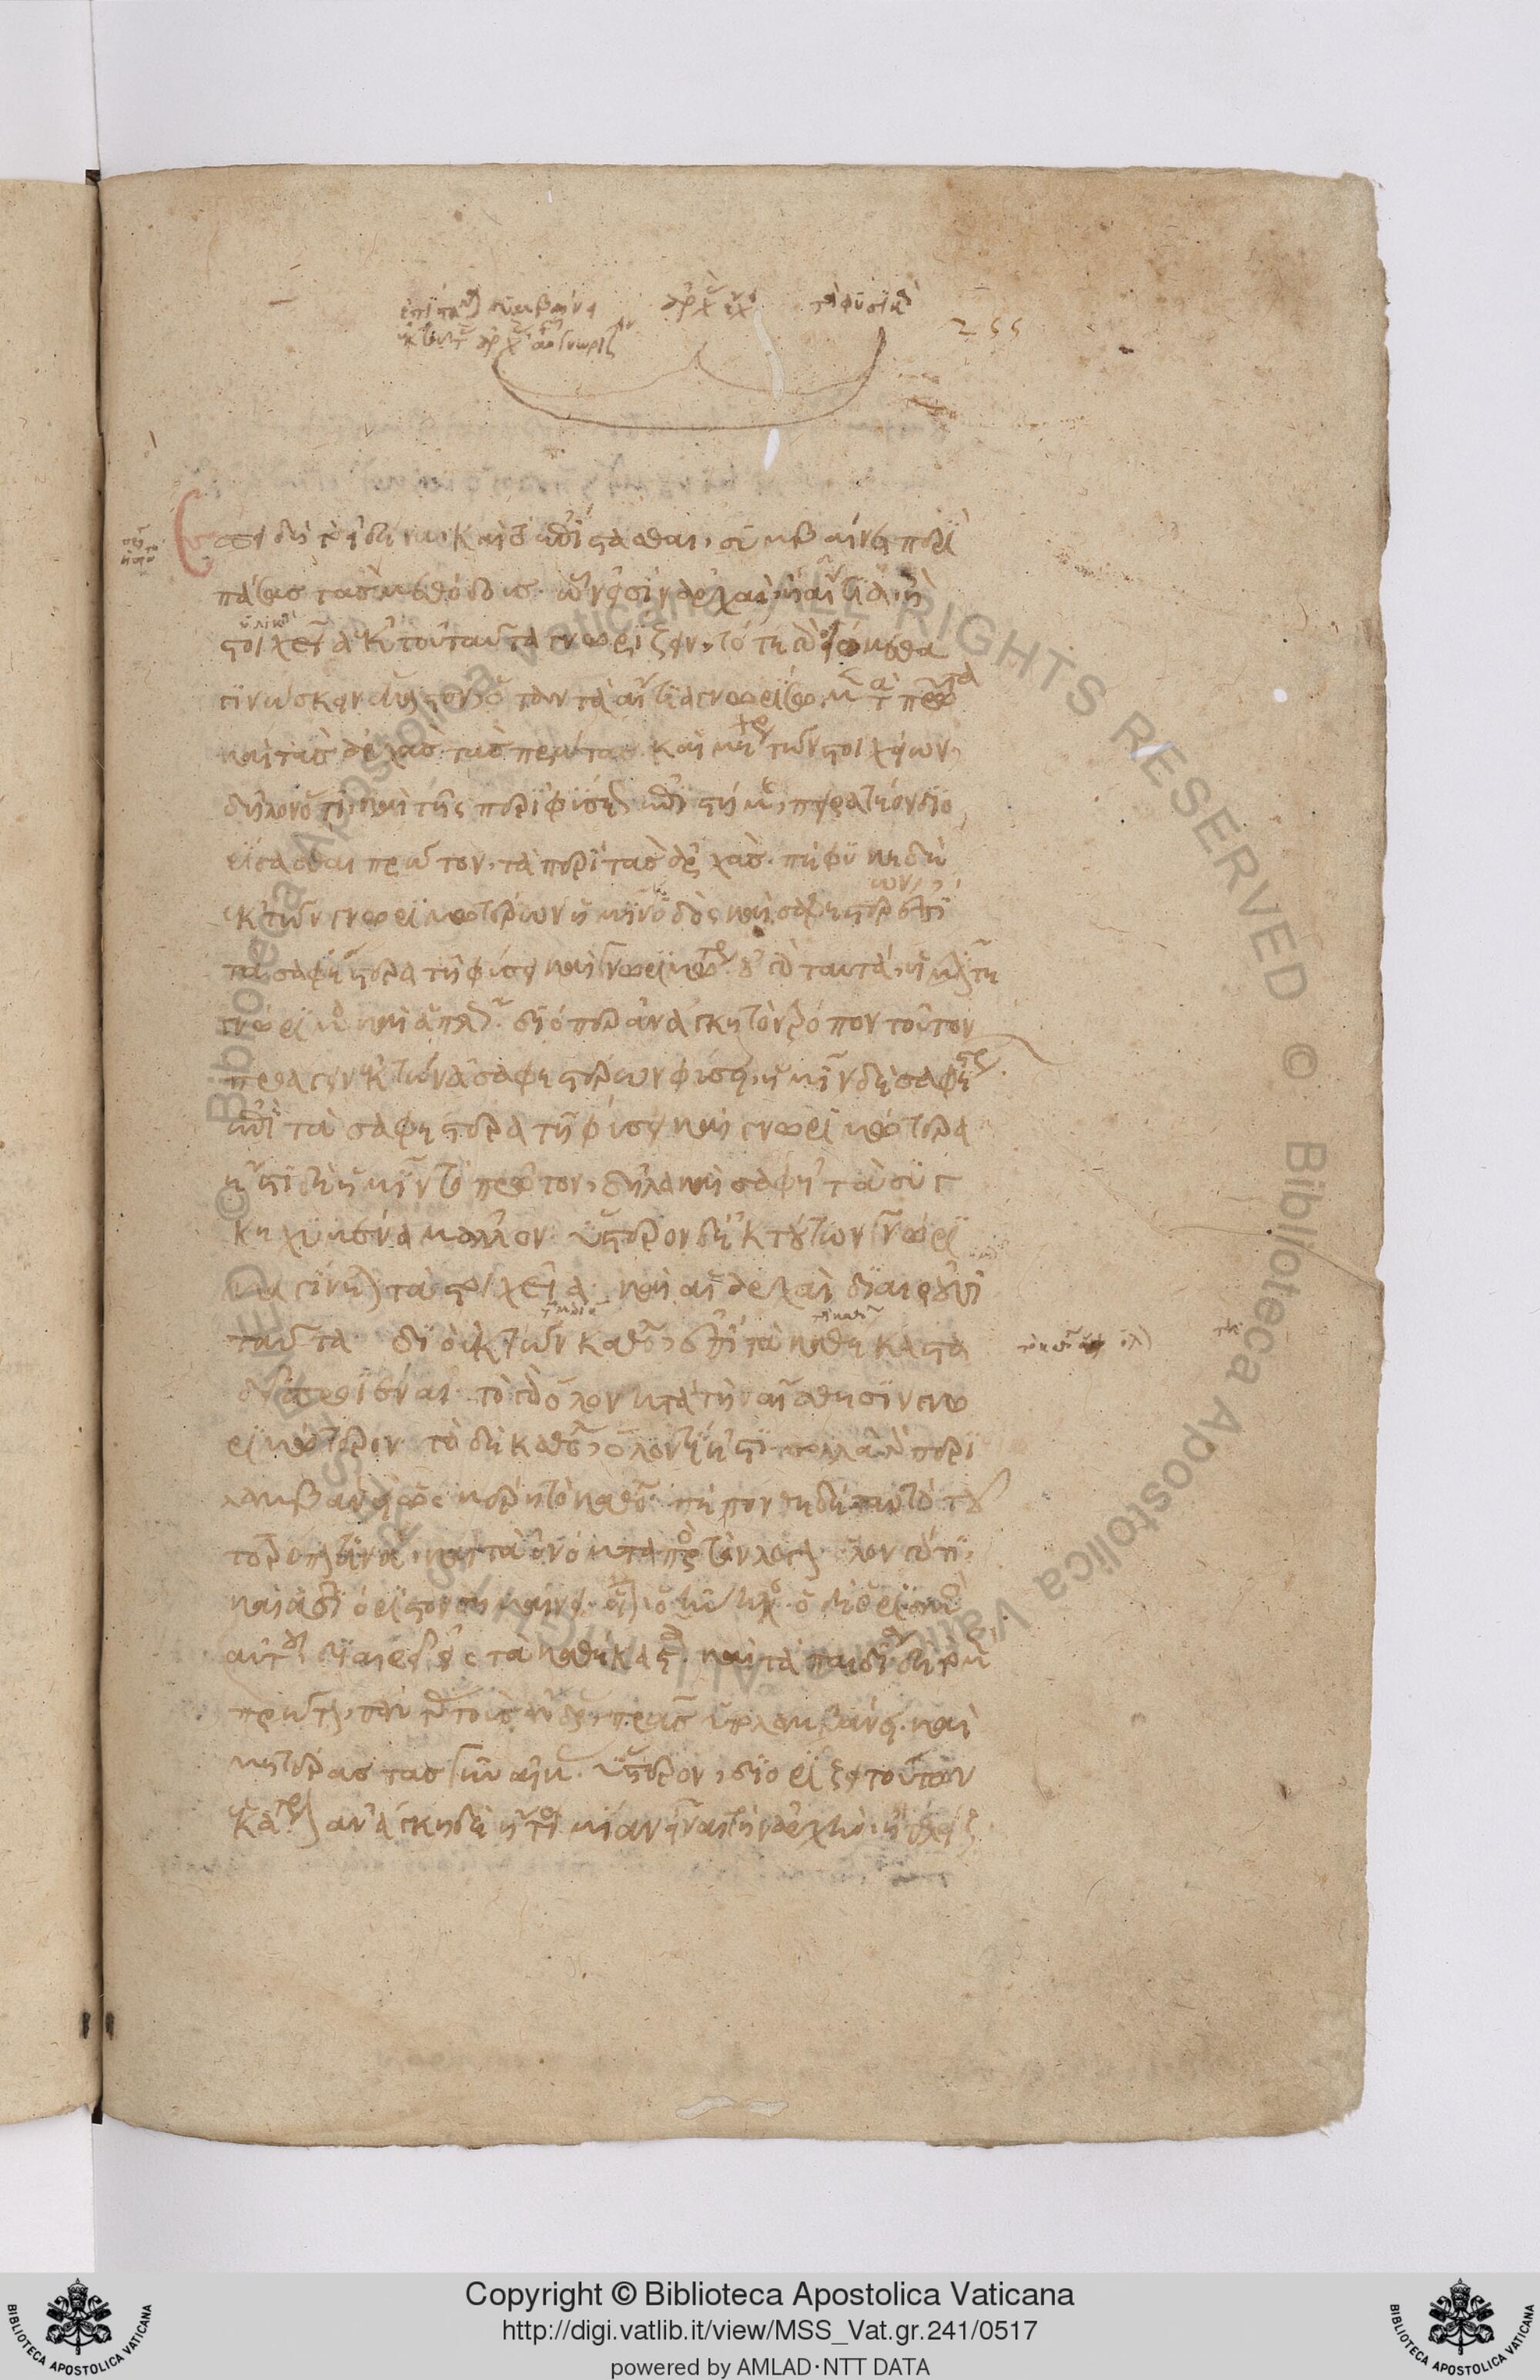 ἐπειδὴ τὸ εἰδέναι καὶ τὸ ἐπίστασθαι, συμβαίνει περὶ
πάσας τὰς μεθόδους ὧν εἰσὶν ἀρχαὶ ἢ αἴτια ἢ
στοιχεῖα ἐκ τοῦ ταῦτα γνωρίζειν, τότε γὰρ οἰόμεθα
γινώσκειν ἕκαστον, ὅταν τὰ αἴτια γνωρίσωμεν τὰ πρῶτα
καὶ τὰς ἀρχὰς τὰς πρώτας καὶ μέχρι τῶν στοιχείων,
δῆλον ὅτι καὶ τῆς περὶ φύσεως ἐπιστήμης, πειρατέον διο
ρίσασθαι πρῶτον, τὰ περὶ τὰς ἀρχάς. πέφυκε δὲ
ἐκ τῶν γνωριμωτέρων ἡμῖν ὁδὸς καὶ σαφεστέρων ἐπὶ
τὰ σαφέστερα τῇ φύσει καὶ γνωριμώτερα. οὐ γὰρ ταυτὰ ἡμῖν τε
γνώριμα καὶ ἁπλῶς. διόπερ ἀνάγκη τὸν τρόπον τοῦτον
προάγειν ἐκ τῶν ἀσαφεστέρων φύσει, ἡμῖν δὲ σαφεστέρων
ἐπὶ τὰ σαφέστερα τῇ φύσει καὶ γνωριμώτερα
ἔστι δὲ ἡμῖν τὸ πρῶτον, δῆλα καὶ σαφῆ τὰ συγ
κεχυμένα μᾶλλον. ὕστερον δὲ ἐκ τούτων γνώρι
μα γίνεται τὰ στοιχεῖα καὶ αἱ ἀρχαὶ διαιροῦσι
ταῦτα. διὸ ἐκ τῶν καθόλου, ἐπὶ τὰ καθέκαστα
δεῖ προϊέναι. τὸ γὰρ ὅλον κατὰ τὴν αἴσθησιν γνω
ριμώτερον. τὸ δὲ καθόλου, ὅλον τί ἐστι. πολλὰ γὰρ περι
λαμβάνει ὡς μέρη τὸ καθόλου. πέπονθε δὲ ταυτὸ τοῦτο
τρόπον τινὰ, καὶ τὰ ὀνόματα πρὸς τὸν λόγον. ὅλον γάρ τι,
καὶ ἀδιορίστως σημαίνει. οἷον, ὁ κύκλος. ὁ δὲ ὁρισμὸς
αὐτοῦ διαιρεῖ εἰς τὰ καθέκαστα. καὶ τὰ παιδία δὲ τὸ μὲν
πρῶτον, πάντας τοὺς ἄνδρας πατέρας ὑπολαμβάνει. καὶ
μητέρας τὰς γυναῖκας. ὕστερον, διορίζει τούτων
ἑκάτερον. ἀνάγκη δὲ ἤτοι μίαν εἶναι τὴν ἀρχὴν, ἢ πλείους
255
Copyright © Biblioteca Apostolica Vaticana
http://digi.vatlib.it/view/MSS_Vat.gr.241/0517
powered by AMLAD·NTT DATA